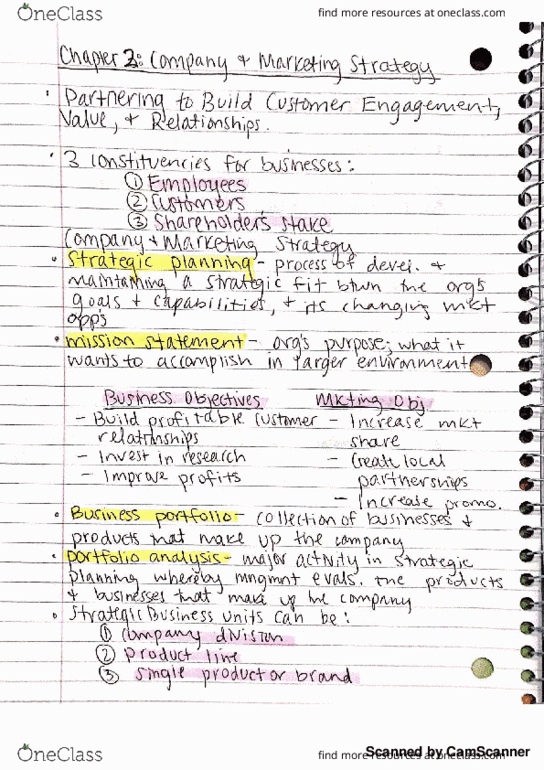 OneClass
find more resources at oneclass.com
Chapter 2: Company + Marketing Strategy
• Partnering to Build Customer Engagement,
Value, + Relationships.
• 3 constituencies for businesses:
① Employees
② Customers
③ Shareholders stake
Company + Marketing Strategy
• Strategic planning - process of devel. +
maintaining a strategic fit btwn the org's
goals + capabilities, + its changing mkt
opps
• mission statement - org's purpose; what it
wants to accomplish in larger environment
Business Objectives Mkting Obj
- Build profitable customer - Increase mkt
relationships share
- Invest in research - Create local
- Improve profits partnerships
- Increase promo.
• Business portfolio - collection of businesses +
products that make up the company
• portfolio analysis - major activity in strategic
planning whereby mngmnt evals. the products
+ businesses that make up the company
• Strategic Business units can be:
① company division
② product line
③ single product or brand
OneClass
find more resources at oneclass.com
Scanned by CamScanner